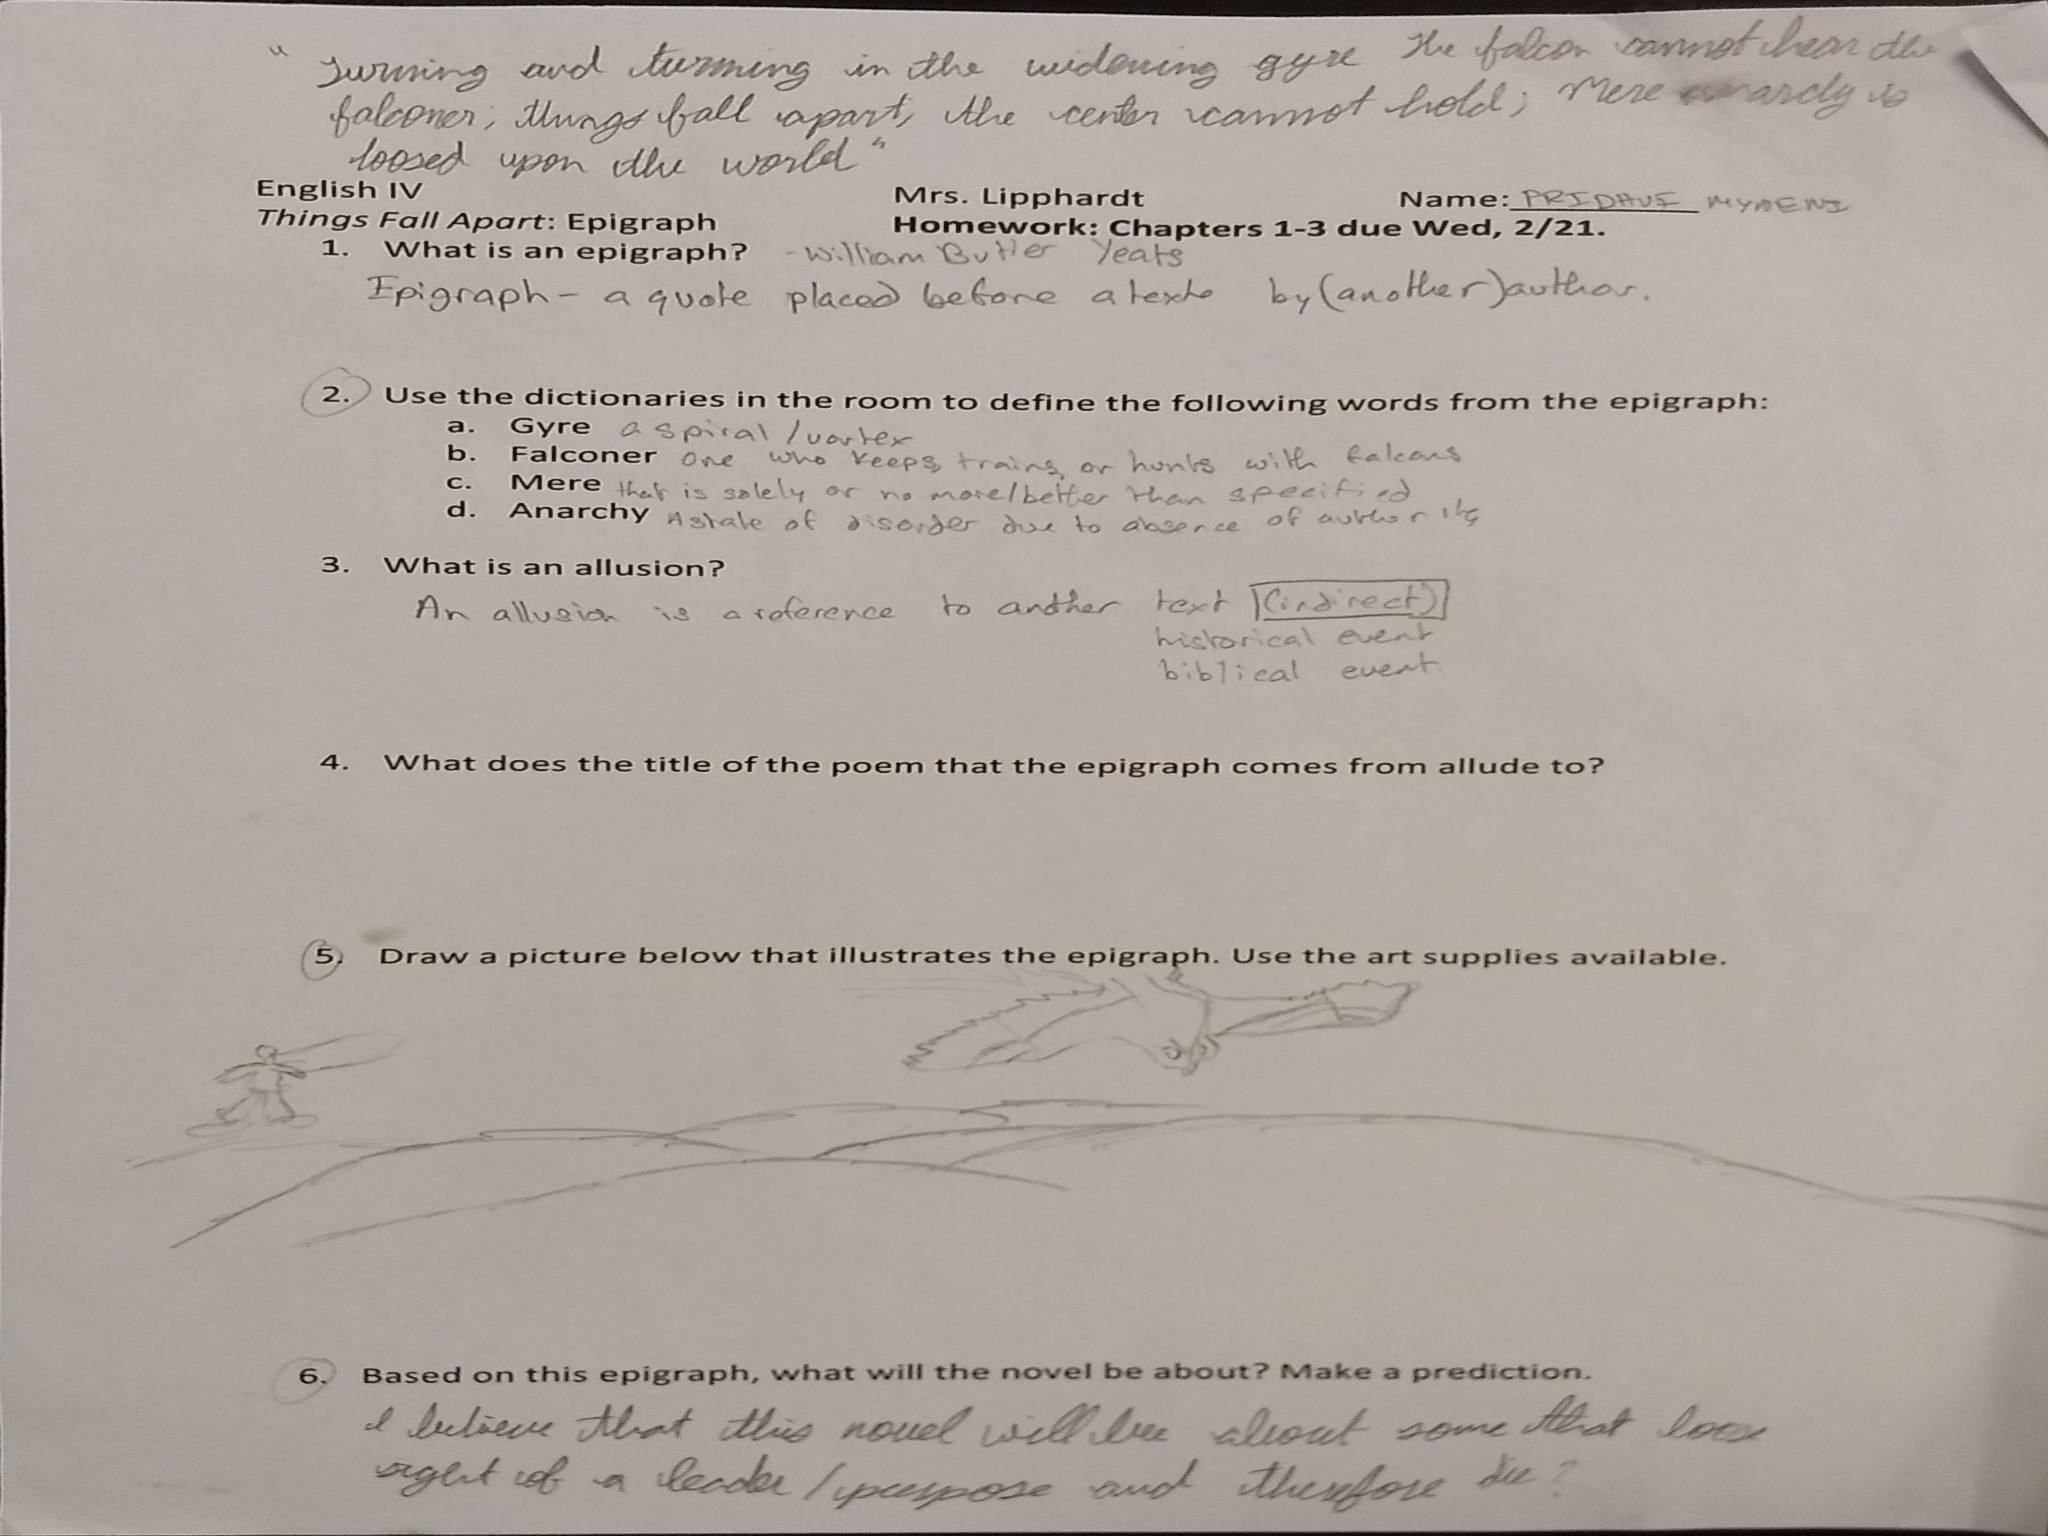 " Turning and turning in the widening gyre The falcon cannot hear the
falconer; things fall apart, the center cannot hold; Mere anarchy is
loosed upon the world"
English IV Mrs. Lipphardt Name: PRIDHVI MYNENI
Things Fall Apart: Epigraph Homework: Chapters 1-3 due Wed, 2/21.
1. What is an epigraph? - William Butler Yeats
Epigraph - a quote placed before a text by (another) author.
2. Use the dictionaries in the room to define the following words from the epigraph:
a. Gyre a spiral / vortex
b. Falconer one who keeps, trains, or hunts with falcons
c. Mere that is solely or no more/better than specified
d. Anarchy A state of disorder due to absence of authority
3. What is an allusion?
An allusion is a reference to another text (indirect)
historical event
biblical event.
4. What does the title of the poem that the epigraph comes from allude to?
5. Draw a picture below that illustrates the epigraph. Use the art supplies available.
6. Based on this epigraph, what will the novel be about? Make a prediction.
I believe that this novel will be about some that loose
sight of a leader / purpose and therefore die?